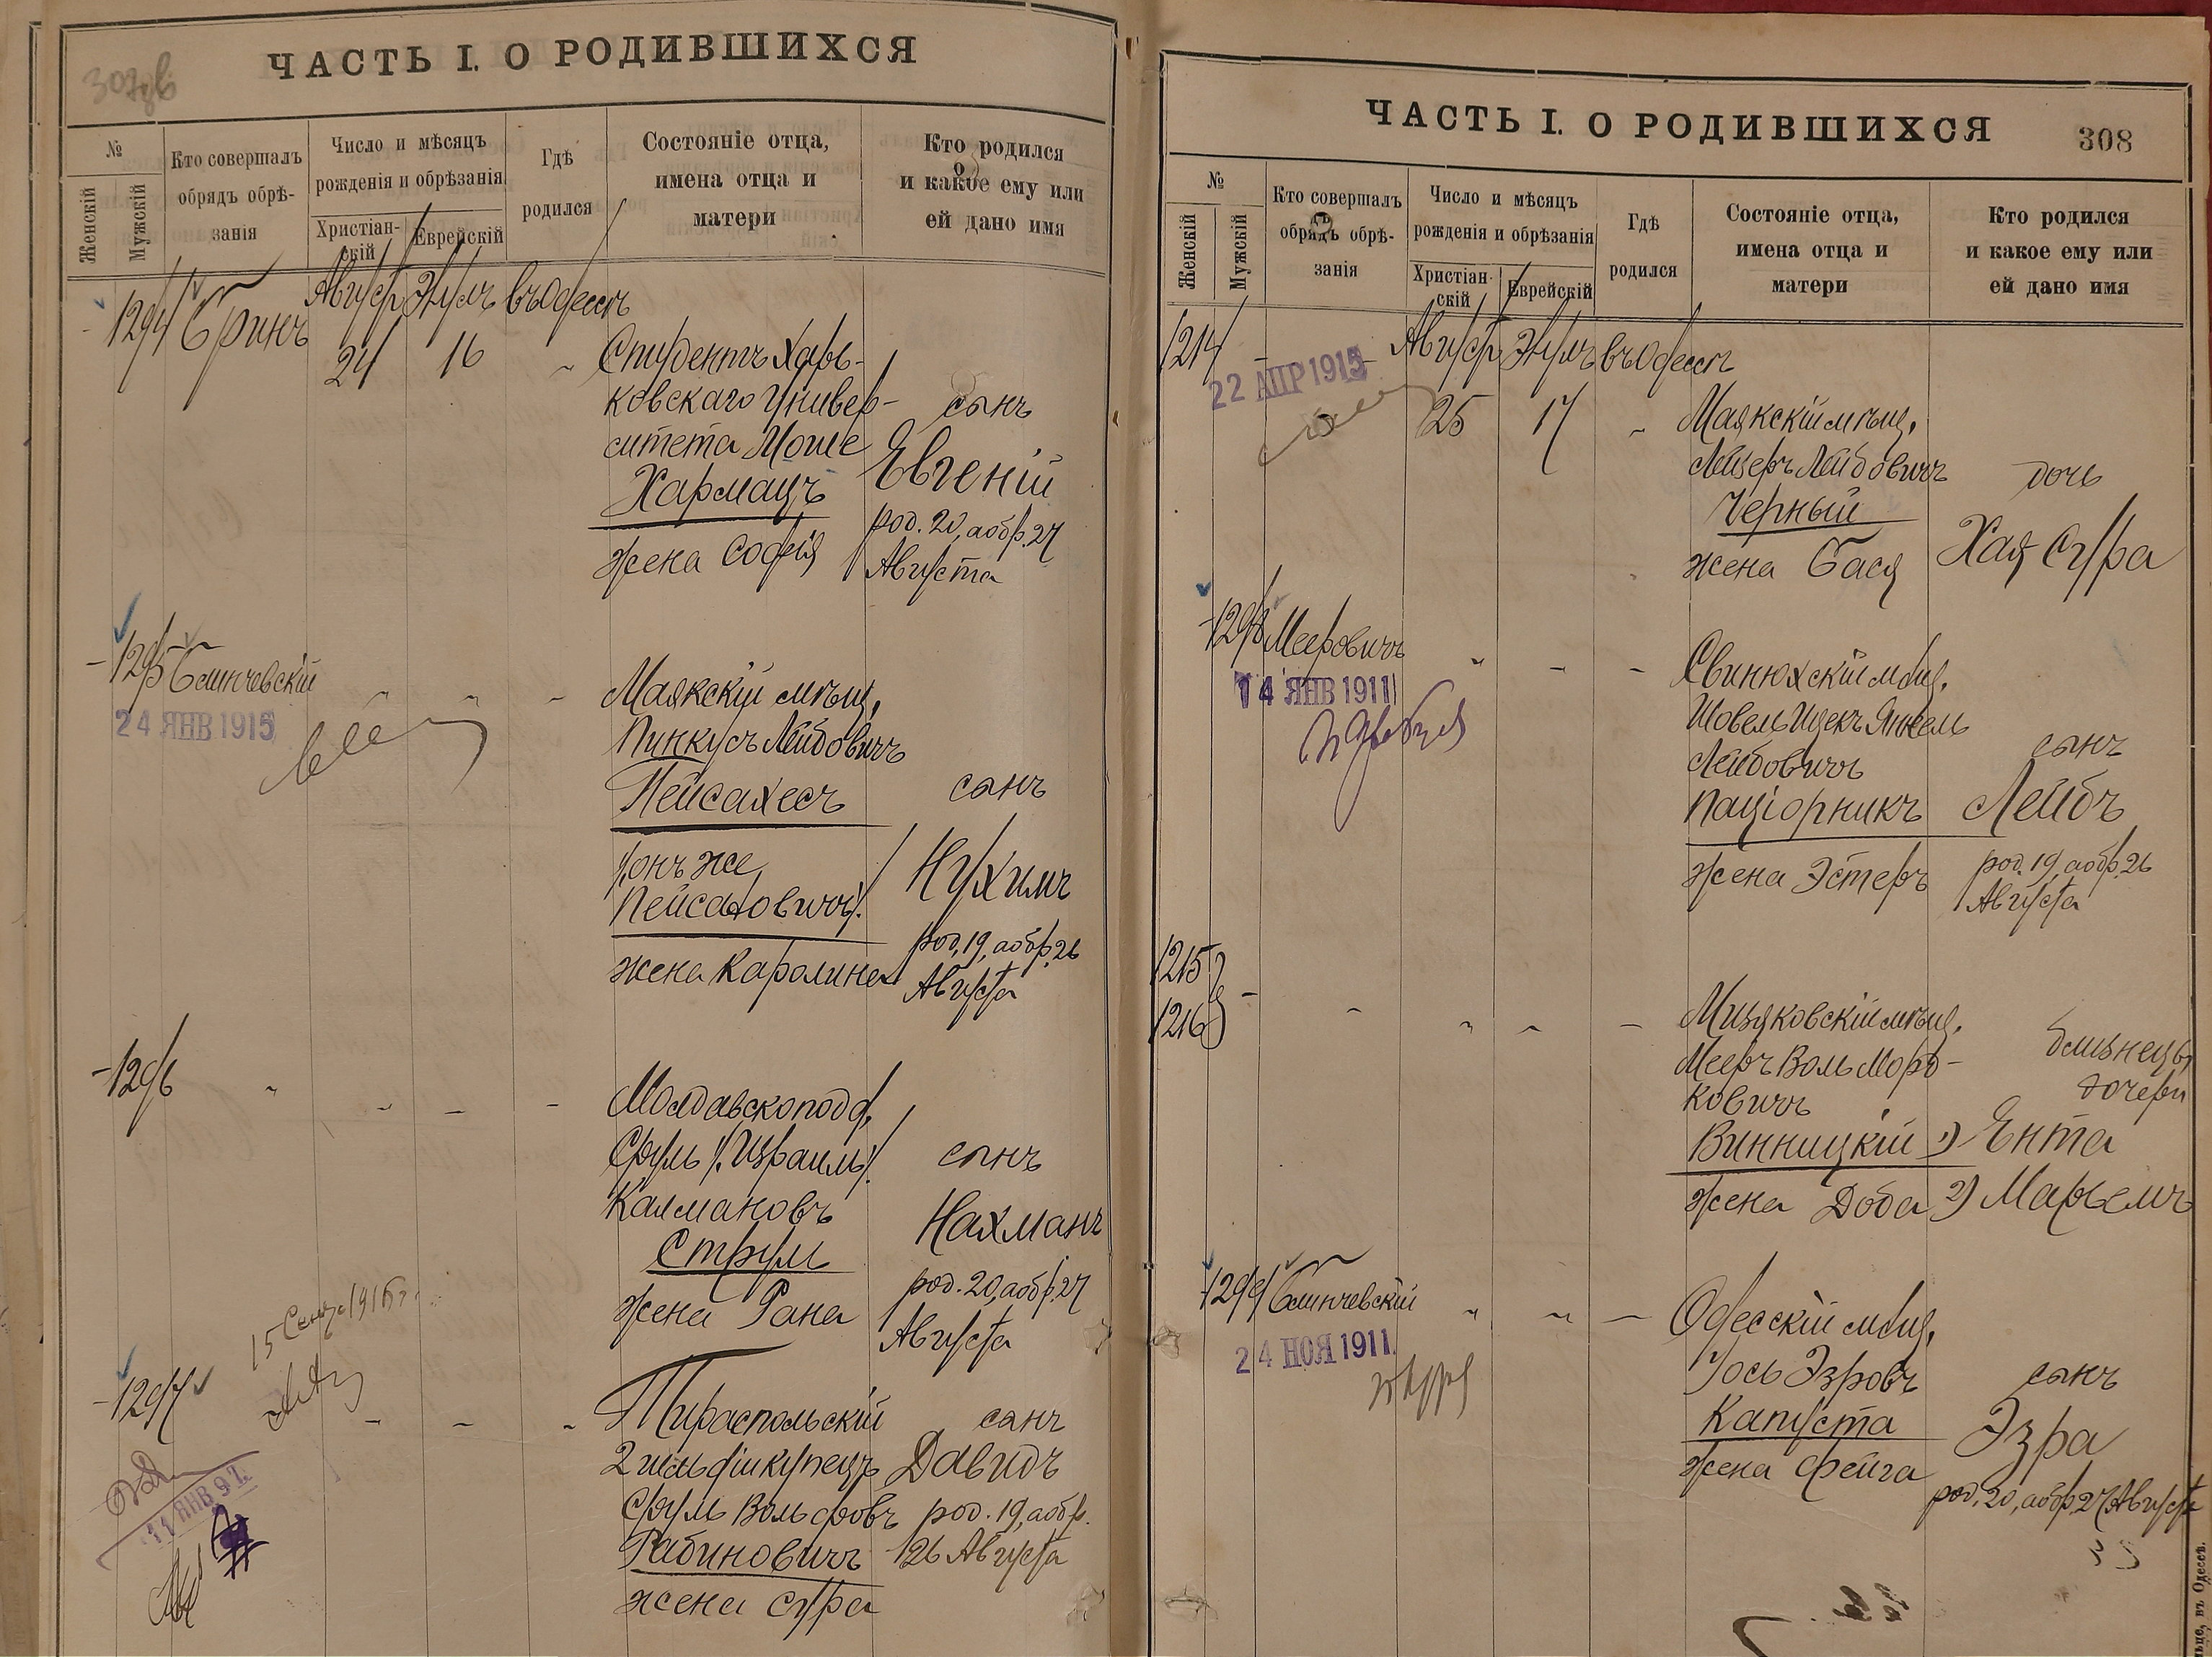 307 об
ЧАСТЬ I. О РОДИВШИХСЯ
№
Женскій
Мужскій
Кто совершалъ
обрядъ обрѣ-
занія
Число и мѣсяцъ
рожденія и обрѣзанія
Христіан-
скій
Еврейскій
Гдѣ
родился
Состояніе отца,
имена отца и
матери
Кто родился
и какое ему или
ей дано имя
1294 Гринъ Августъ Элулъ въ Одессѣ
24 16 Студентъ Харь-
ковскаго Универ-
ситета Моше
Хармацъ
жена Софія
сынъ
Евгеній
род. 20, а обр. 27
Августа
1295 Блинчевскій
24 ЯНВ 1915
Маякскій мѣщ.
Пинкусъ Лейбовичъ
Пейсахесъ
/:онъ же
Пейсаховичъ:/
жена Каролина
сынъ
Нухимъ
род. 19, а обр. 26
Августа
1296 Молдавскоподд.
Сруль /:Израиль:/
Калмановъ
Струл
жена Рана
сынъ
Нахманъ
род. 20, а обр. 27
Августа
1297
11 ЯНВ 97.
Тираспольскій
2 гильдіи купецъ
Сруль Вольфовъ
Рабиновичъ
жена Сура
сынъ
Давидъ
род. 19, а обр.
26 Августа
ЧАСТЬ I. О РОДИВШИХСЯ 308
№
Женскій
Мужскій
Кто совершалъ
обрядъ обрѣ-
занія
Число и мѣсяцъ
рожденія и обрѣзанія
Христіан-
скій
Еврейскій
Гдѣ
родился
Состояніе отца,
имена отца и
матери
Кто родился
и какое ему или
ей дано имя
1214 Августъ Элулъ въ Одессѣ
22 АПР 1915
25 17 Маякскій мѣщ.
Лейзеръ Лейбовичъ
Черный
жена Бася
дочь
Хая Сура
1298 Мееровичъ
14 ЯНВ 1911
Свинюхскій мѣщ.
Шовель Ицекъ Янкель
Лейбовичъ
Паціорникъ
жена Эстеръ
сынъ
Лейбъ
род. 19, а обр. 26
Августа
1215
1216
Мизяковскій мѣщ.
Мееръ Воль Морд-
ковичъ
Винницкій
жена Доба
близнецы
дочери
1) Ента
2) Марьемъ
1299 Блинчевскій
24 НОЯ 1911.
Одесскій мѣщ.
Іось Эзровъ
Капуста
жена Фейга
сынъ
Эзра
род. 20, а обр. 27 Августа
въ Одессѣ.